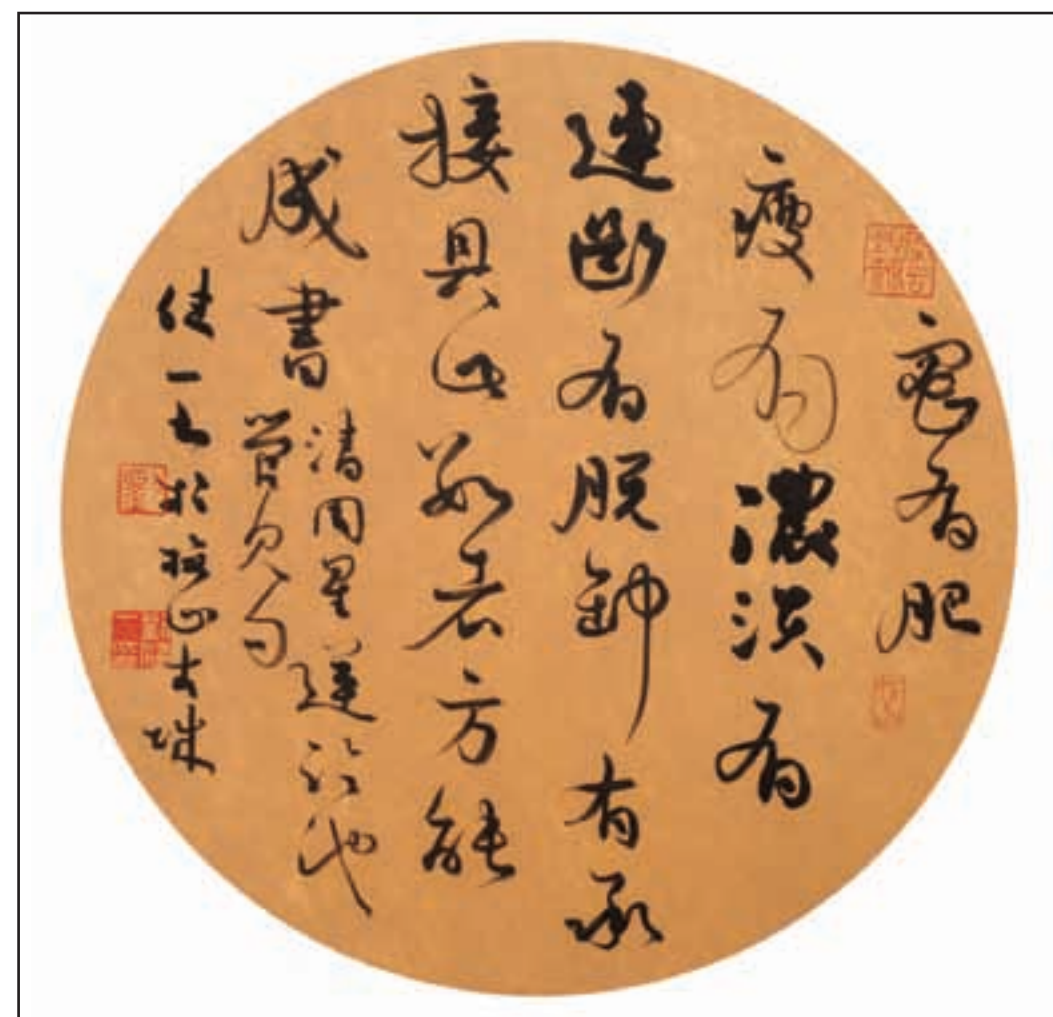 有肥
瘦有濃淡有
連斷有脫卸有承
接具此數者方能
成書
清周星蓮臨池
管見句
佳一書於山